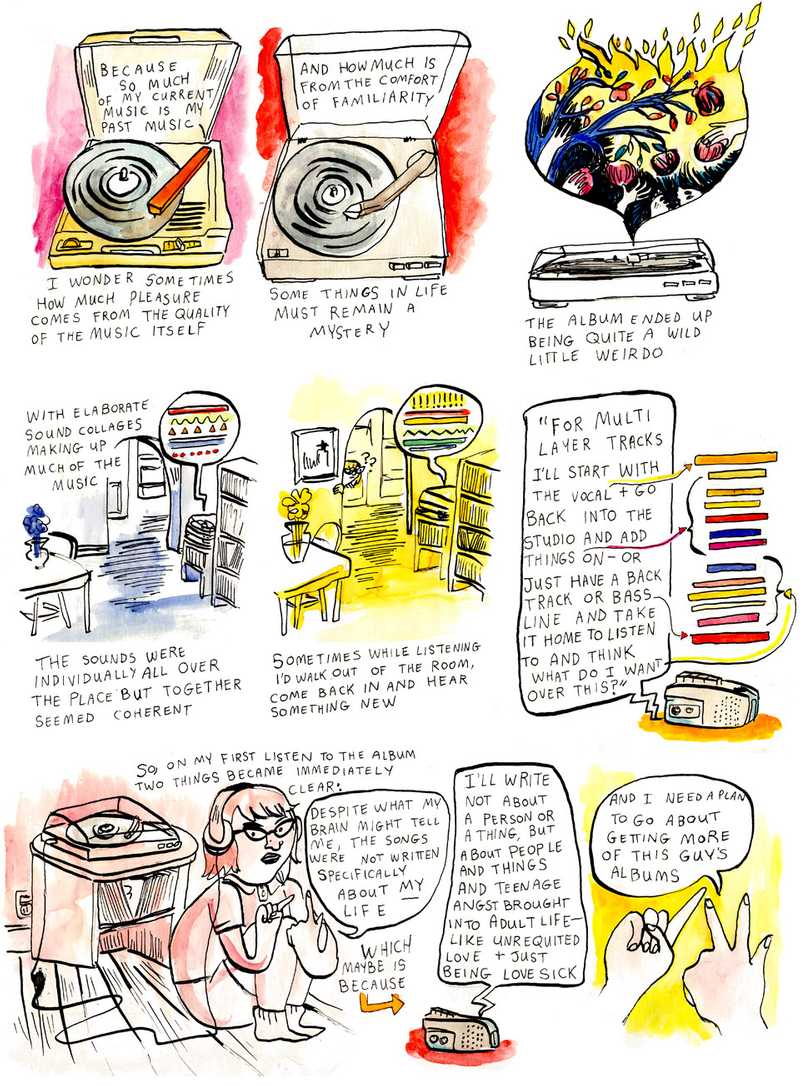 BECAUSE
SO MUCH
OF MY CURRENT
MUSIC IS MY
PAST MUSIC
I WONDER SOMETIMES
HOW MUCH PLEASURE
COMES FROM THE QUALITY
OF THE MUSIC ITSELF
AND HOW MUCH IS
FROM THE COMFORT
OF FAMILIARITY
SOME THINGS IN LIFE
MUST REMAIN A
MYSTERY
THE ALBUM ENDED UP
BEING QUITE A WILD
LITTLE WEIRDO
WITH ELABORATE
SOUND COLLAGES
MAKING UP
MUCH OF THE
MUSIC
THE SOUNDS WERE
INDIVIDUALLY ALL OVER
THE PLACE BUT TOGETHER
SEEMED COHERENT
??
SOMETIMES WHILE LISTENING
I'D WALK OUT OF THE ROOM,
COME BACK IN AND HEAR
SOMETHING NEW
"FOR MULTI
LAYER TRACKS
I'LL START WITH
THE VOCAL + GO
BACK INTO THE
STUDIO AND ADD
THINGS ON — OR
JUST HAVE A BACK
TRACK OR BASS
LINE AND TAKE
IT HOME TO LISTEN
TO AND THINK
WHAT DO I WANT
OVER THIS?"
SO, ON MY FIRST LISTEN TO THE ALBUM
TWO THINGS BECAME IMMEDIATELY
CLEAR:
DESPITE WHAT MY
BRAIN MIGHT TELL
ME, THE SONGS
WERE NOT WRITTEN
SPECIFICALLY
ABOUT MY
LIFE
WHICH
MAYBE IS
BECAUSE
I'LL WRITE
NOT ABOUT
A PERSON OR
A THING, BUT
ABOUT PEOPLE
AND THINGS
AND TEENAGE
ANGST BROUGHT
INTO ADULT LIFE—
LIKE UNREQUITED
LOVE + JUST
BEING LOVE SICK
AND I NEED A PLAN
TO GO ABOUT
GETTING MORE
OF THIS GUY'S
ALBUMS